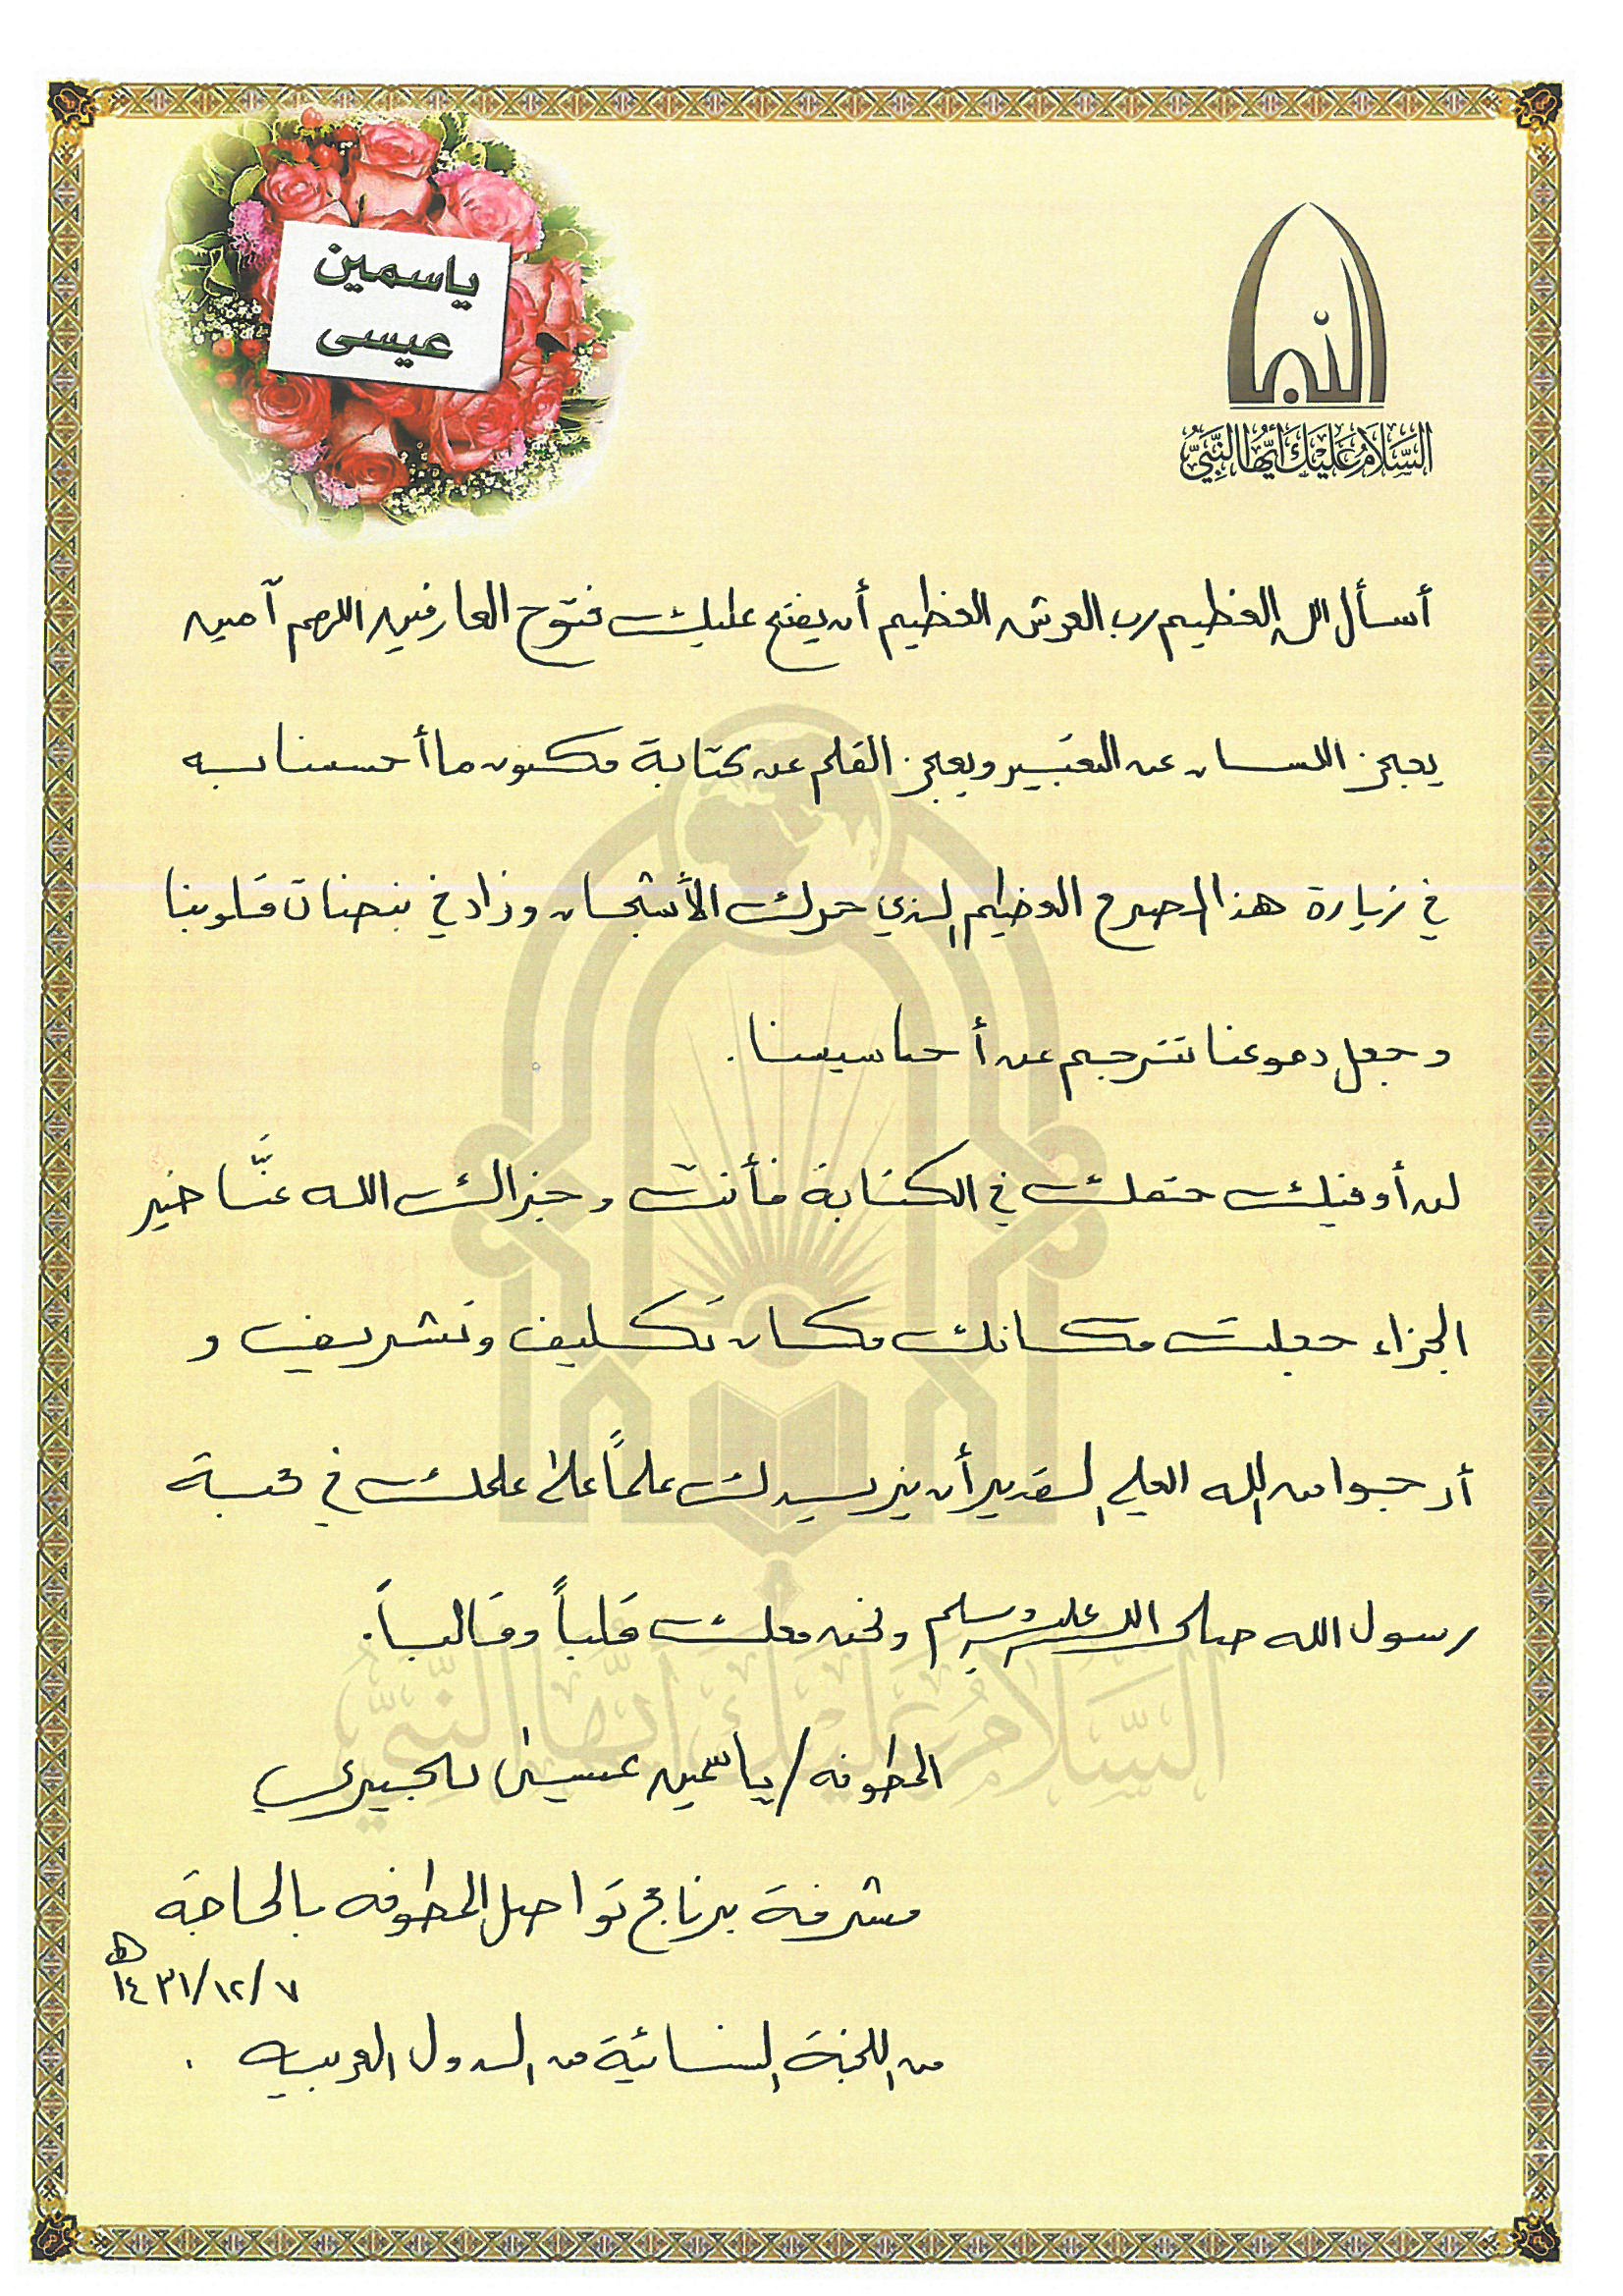 ياسمين
عيسى
السَّلَامُ عَلَيْكَ أَيُّهَا النَّبِيُّ
أسأل الله العظيم رب العرش العظيم أن يفتح عليك فتوح العارفين اللهم آمين
يعجز اللسان عن التعبير ويعجز القلم عن كتابة مكنون ما أحسسنا به
في زيارة هذا الصرح العظيم الذي حرك الأشجان وزاد في نبضات قلوبنا
وجعل دموعنا تترجم عن أحاسيسنا.
لن أوفيك حقك في الكتابة فأنت وجزاك الله عنَّا خير
الجزاء جعلت مكانك مكان تكليف وتشريف و
أرجوا من الله العلي القدير أن يزيدك علماً على علمك في محبة
رسول الله صلى الله عليه وسلم ونحن معك قلباً وقالباً.
المطوفه / ياسمين عيسى
مشرفة برنامج تواصل المطوفه بالحاجة
١٤٣١/١٢/٧ هـ
من اللجنة النسائية من الدول العربيه .
السَّلَامُ عَلَيْكَ أَيُّهَا النَّبِيُّ